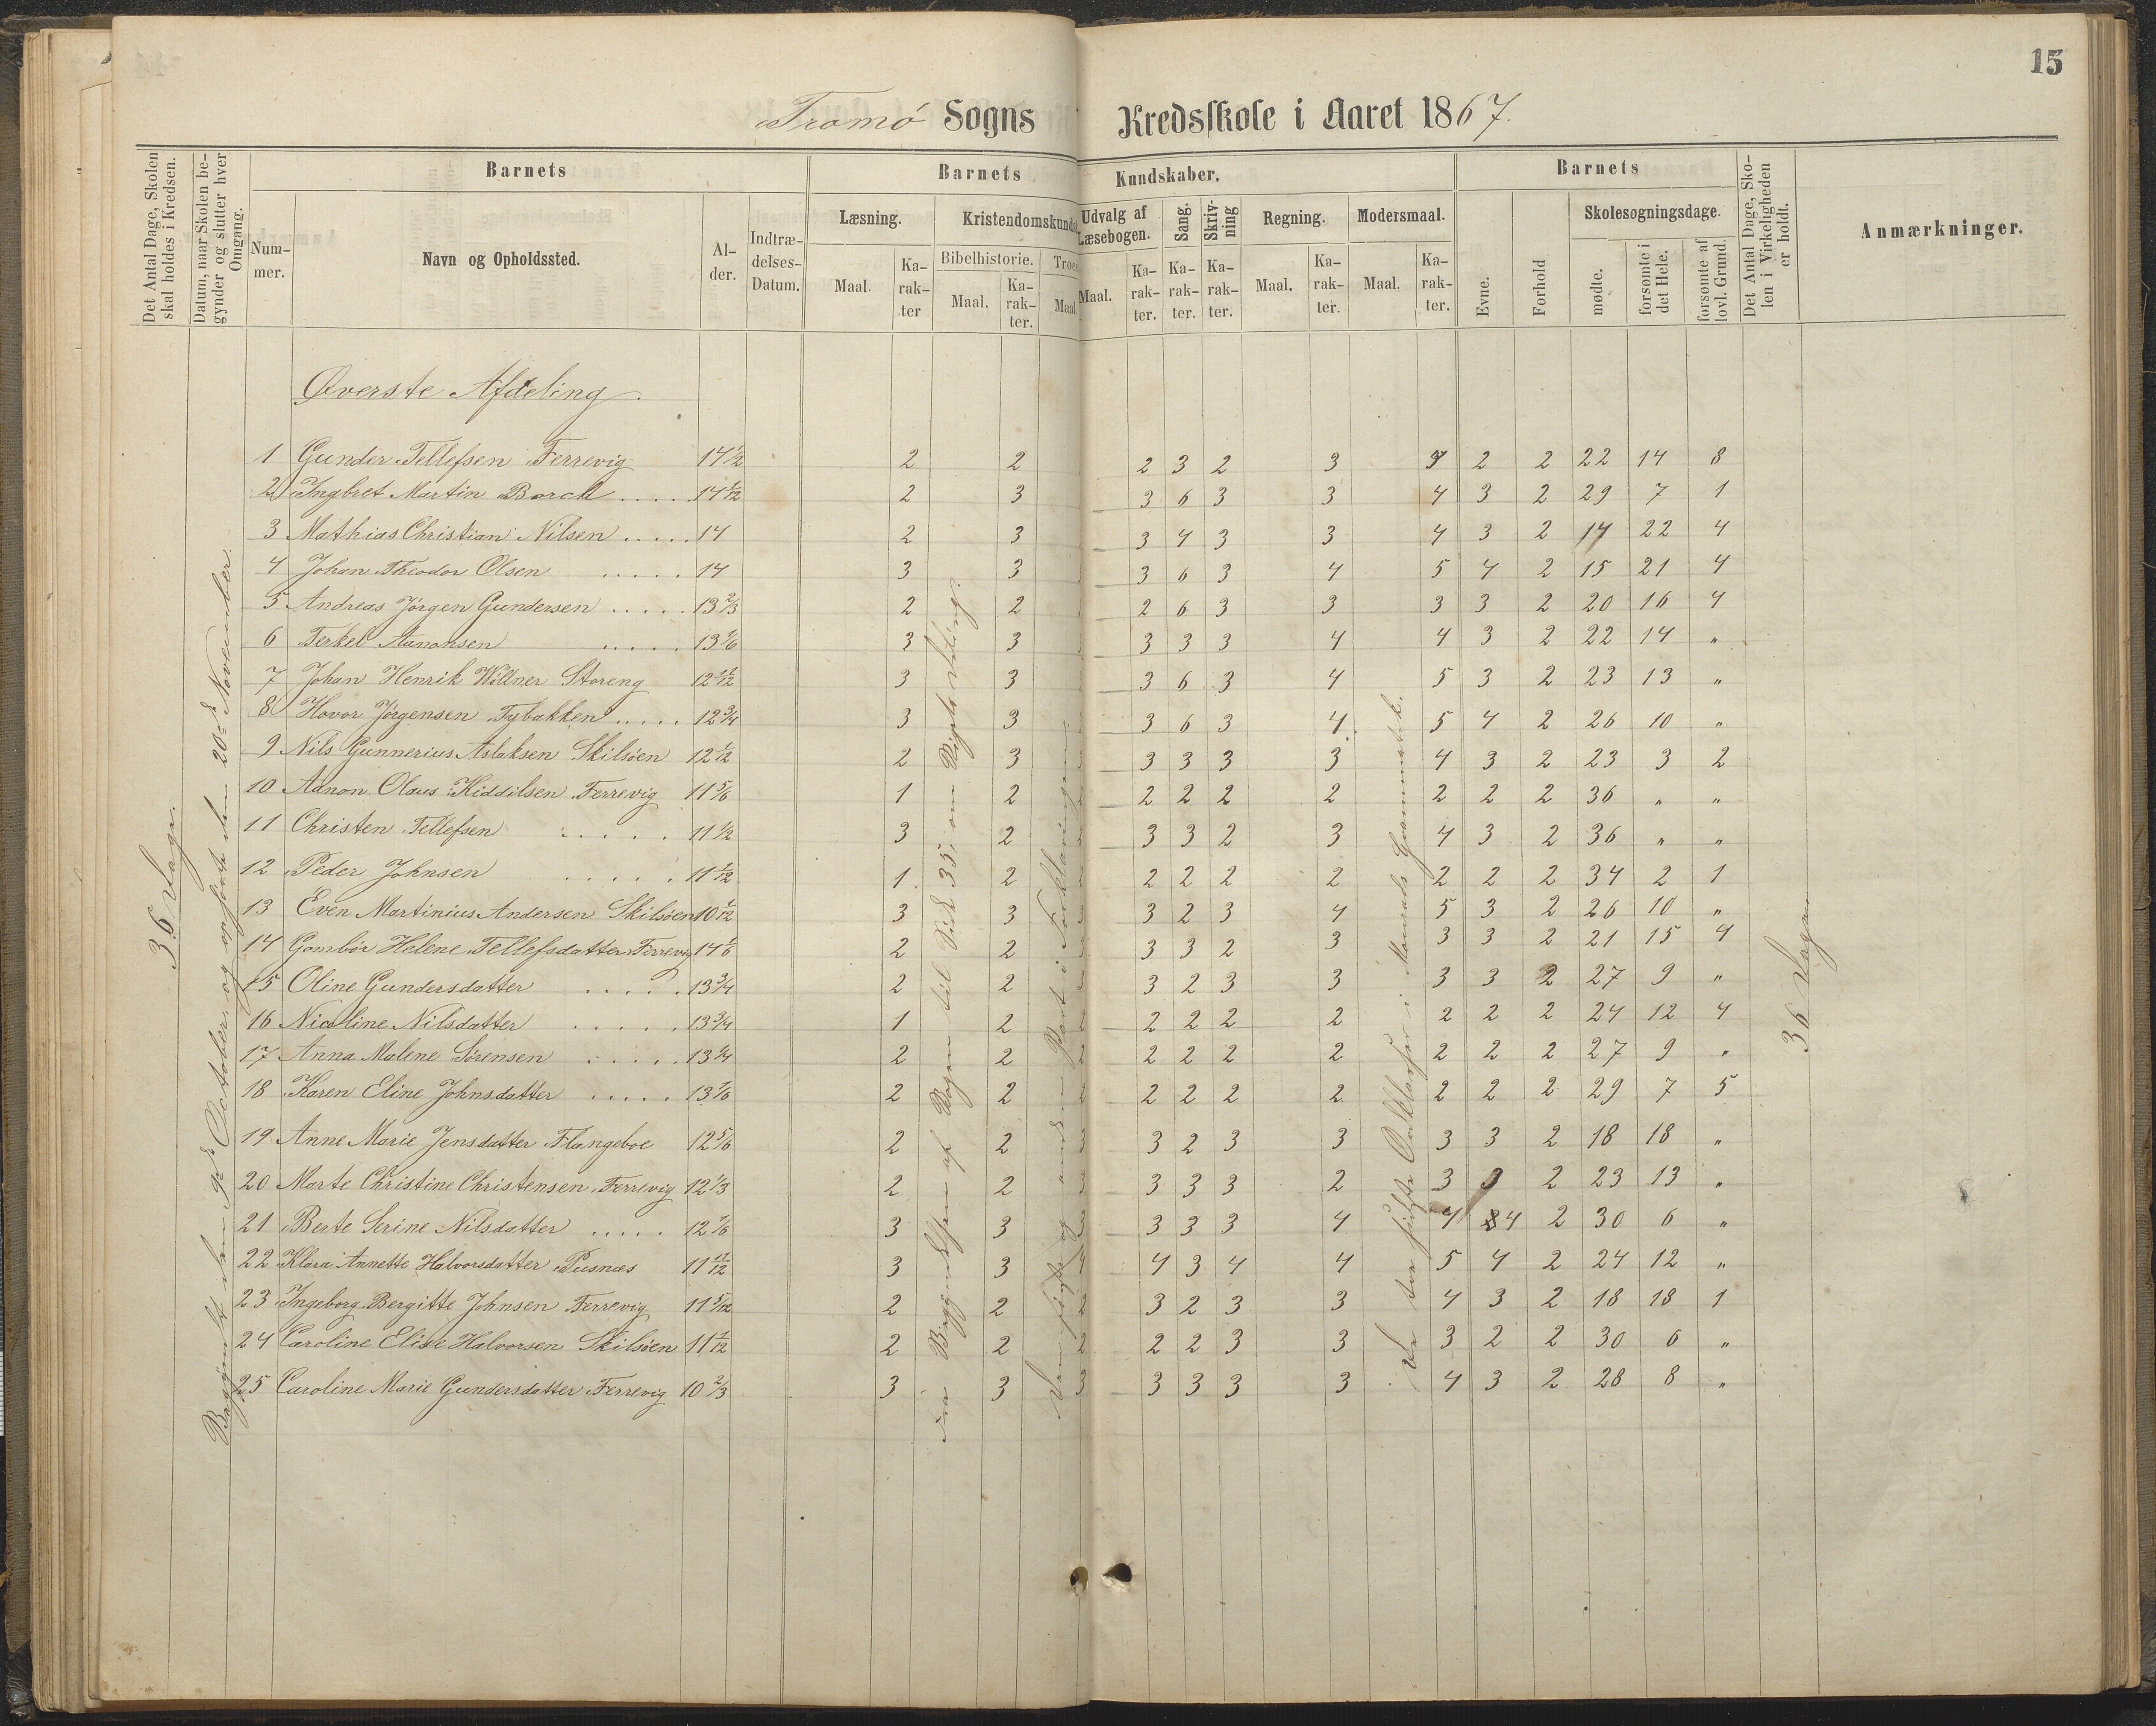 15
Tromø Sogns Kredsskole i Aaret 1867.
Det Antal Dage, Skolen skal holdes i Kredsen.
Datum, naar Skolen begynder og slutter hver Omgang.
Barnets
Num-mer.
Navn og Opholdssted.
Al-der.
Indtræ-delses-Datum.
Barnets Kundskaber.
Læsning.
Maal. Ka-rak-ter
Kristendomskund
Bibelhistorie.
Maal. Ka-rak-ter.
Troes
Maal.
Udvalg af Læsebogen.
Maal. Ka-rak-ter.
Sang. Ka-rak-ter.
Skriv-ning Ka-rak-ter.
Regning.
Maal. Ka-rak-ter.
Modersmaal.
Maal. Ka-rak-ter.
Barnets
Evne.
Forhold
Skolesøgningsdage.
mødte.
forsømte i det Hele.
forsømte af lovl. Grund.
Det Antal Dage, Sko-len i Virkeligheden er holdt.
Anmærkninger.
Øverste Afdeling.
1 Gunder Tellefsen Ferrevig 14 1/2 2 2 2 3 2 3 4 2 2 22 14 8
2 Ingbret Martin Borch ..... 14 1/12 2 3 3 6 3 3 4 3 2 29 7 1
3 Mathias Christian Nilsen ..... 14 2 3 3 4 3 3 4 3 2 14 22 4
4 Johan Theodor Olsen ..... 14 3 3 3 6 3 4 5 4 2 15 21 4
5 Andreas Jørgen Gundersen ..... 13 2/3 2 2 2 6 3 3 3 3 2 20 16 4
6 Terkel Aanonsen ..... 13 1/6 3 3 3 3 3 4 4 3 2 22 14 "
7 Johan Henrik Wöllner Storeng 12 11/12 3 3 3 6 3 4 5 3 2 23 13 "
8 Hovor Jørgensen Tybakken ..... 12 3/4 3 3 3 6 3 4 5 4 2 26 10 "
9 Nils Gunnerius Aslaksen Skilsöen 12 1/12 2 3 3 3 3 3 4 3 2 23 3 2
10 Aanon Olaus Kiddilsen Ferrevig 11 5/6 1 2 2 2 2 2 2 2 2 2 36 " "
11 Christen Tellefsen ..... 11 1/2 3 2 3 3 2 3 4 3 2 36 " "
12 Peder Johnsen ..... 11 1/12 1 2 2 2 2 2 2 2 2 2 34 2 1
13 Even Martinius Andersen Skilsöen 10 1/12 3 3 3 3 2 3 4 5 3 2 26 10 "
14 Gombör Helene Tellefsdatter Ferrevig 14 1/6 2 2 3 3 2 3 3 3 2 21 15 4
15 Oline Gundersdatter ..... 13 3/4 2 2 3 2 3 3 3 3 2 27 9 "
16 Nicoline Nilsdatter ..... 13 3/4 1 2 2 2 2 2 2 2 2 2 24 12 4
17 Anna Malene Sørensen ..... 13 1/4 2 2 2 2 2 2 2 2 2 2 27 9 "
18 Karen Eline Johnsdatter ..... 13 1/6 2 2 2 2 2 2 2 2 2 2 29 7 5
19 Anne Marie Jensdatter Flangeboe 12 5/6 2 2 3 3 2 3 3 3 3 2 18 18 "
20 Marte Christine Christensen Ferrevig 12 1/3 2 2 3 3 3 3 2 3 3 2 23 13 "
21 Berte Serine Nilsdatter ..... 12 1/6 3 3 3 3 3 3 4 4 4 2 30 6 "
22 Klara Annette Halvorsdatter Pusnæs 11 11/12 3 3 4 4 3 4 4 5 4 2 24 12 "
23 Ingeborg Bergitte Johnsen Ferrevig 11 5/12 2 2 2 3 2 3 3 4 3 2 18 18 1
24 Caroline Elise Halvorsen Skilsöen 11 1/12 2 2 2 2 2 3 3 3 2 2 30 6 "
25 Caroline Marie Gundersdatter Ferrevig 10 2/3 3 3 3 3 3 3 3 4 3 2 28 8 "
36 Dage.
Begyndt den 9de October og opholdt den 20de November.
Fra Begyndelsen af Bogen til Side 35, om Rigets Deling.
Den første og anden Part i Forklaringen.
De tre første Ordklasser i Monrads Grammatik.
36 Dage.